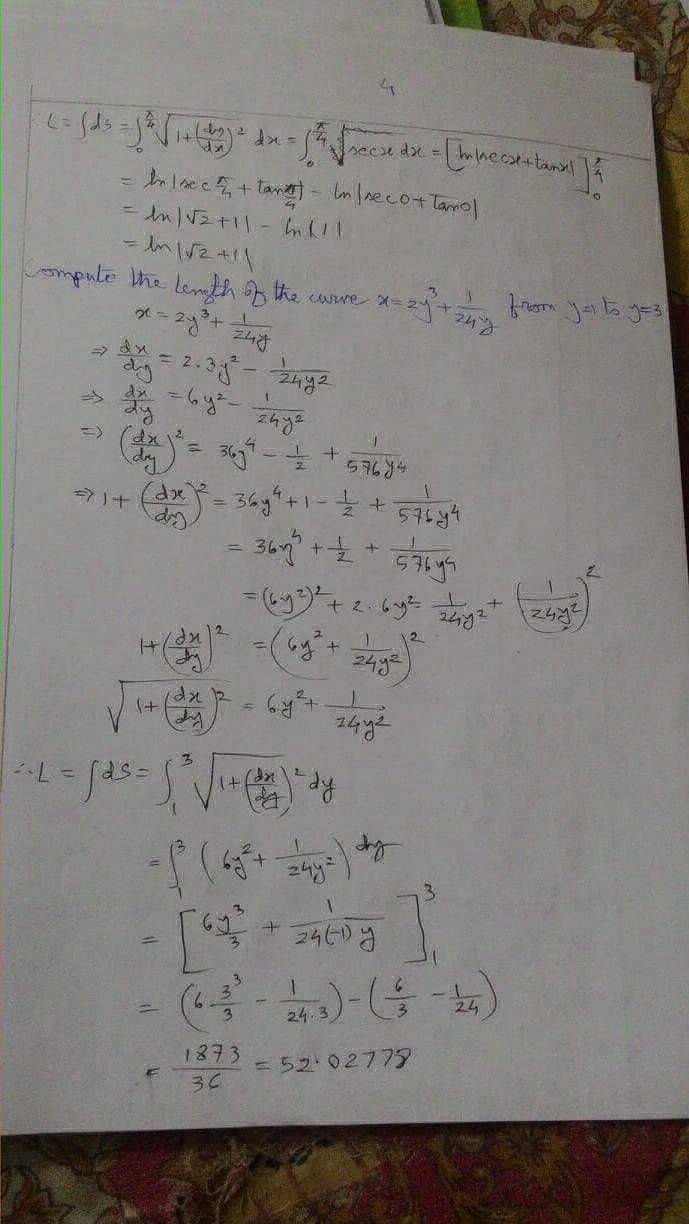 4
∴ L = ∫ds = ∫₀^{π/4} √(1+(dy/dx)²) dx = ∫₀^{π/4} secx dx = [ln|secx+tanx|]₀^{π/4}
= ln|sec π/4 + tan π/4| - ln|sec0+Tan0|
= ln|√2+1| - ln|1|
= ln|√2+1|
Compute the length of the curve x=2y³+1/24y from y=1 to y=3
x = 2y³+1/24y
⇒ dx/dy = 2·3y² - 1/24y2
⇒ dx/dy = 6y² - 1/24y²
⇒ (dx/dy)² = 36y⁴ - 1/2 + 1/576y4
⇒ 1+(dx/dy)² = 36y⁴+1-1/2 + 1/576y⁴
= 36y⁴ + 1/2 + 1/576y4
= (6y²)² + 2·6y²· 1/24y² + (1/24y²)²
1+(dx/dy)² = (6y² + 1/24y²)²
√(1+(dx/dy)²) = 6y² + 1/24y²
∴ L = ∫ds = ∫₁³ √(1+(dx/dy)²) dy
= ∫₁³ (6y² + 1/24y²) dy
= [6y³/3 + 1/24(-1)y]₁³
= (6·3³/3 - 1/24·3) - (6/3 - 1/24)
= 1873/36 = 52.02778